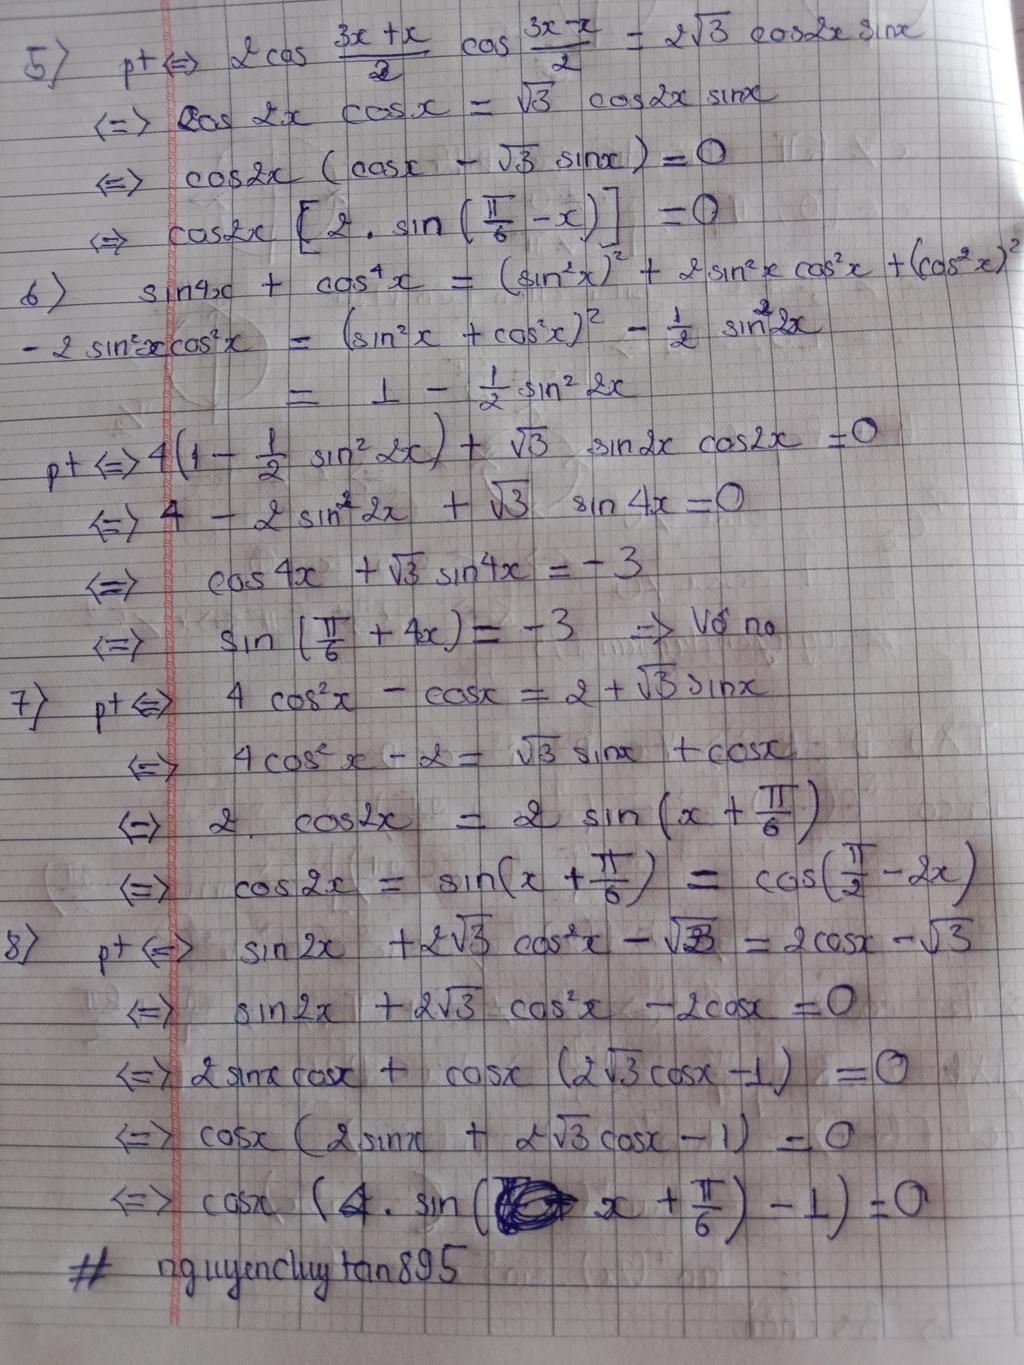 5) pt <=> 2cos (3x+x)/2 cos (3x-x)/2 = 2√3 cos2x sinx
<=> cos 2x cosx = √3 cos2x sinx
<=> cos2x (cosx - √3 sinx) = 0
<=> cos2x [2. sin (π/6 - x)] = 0
6) sin4x + cos⁴x = (sin²x)² + 2sin²x cos²x + (cos²x)²
- 2 sin²x cos²x = (sin²x + cos²x)² - 1/2 sin²2x
= 1 - 1/2 sin² 2x
pt <=> 4(1 - 1/2 sin² 2x) + √3 sin2x cos2x = 0
<=> 4 - 2 sin² 2x + √3 sin 4x = 0
<=> cos4x + √3 sin4x = -3
<=> sin (π/6 + 4x) = -3 => Vô no
7) pt <=> 4 cos²x - cosx = 2 + √3 sinx
<=> 4cos² x - 2 = √3 sinx + cosx
<=> 2. cos2x = 2 sin (x + π/6)
<=> cos2x = sin(x + π/6) = cos(π/2 - 2x)
8) pt <=> sin2x + 2√3 cos²x - √3 = 2cosx - √3
<=> sin2x + 2√3 cos²x - 2cosx = 0
<=> 2sinx cosx + cosx (2√3cosx - 1) = 0
<=> cosx (2sinx + 2√3 cosx - 1) = 0
<=> cosx (4. sin( x + π/6) - 1) = 0
# nguyenchuytan895